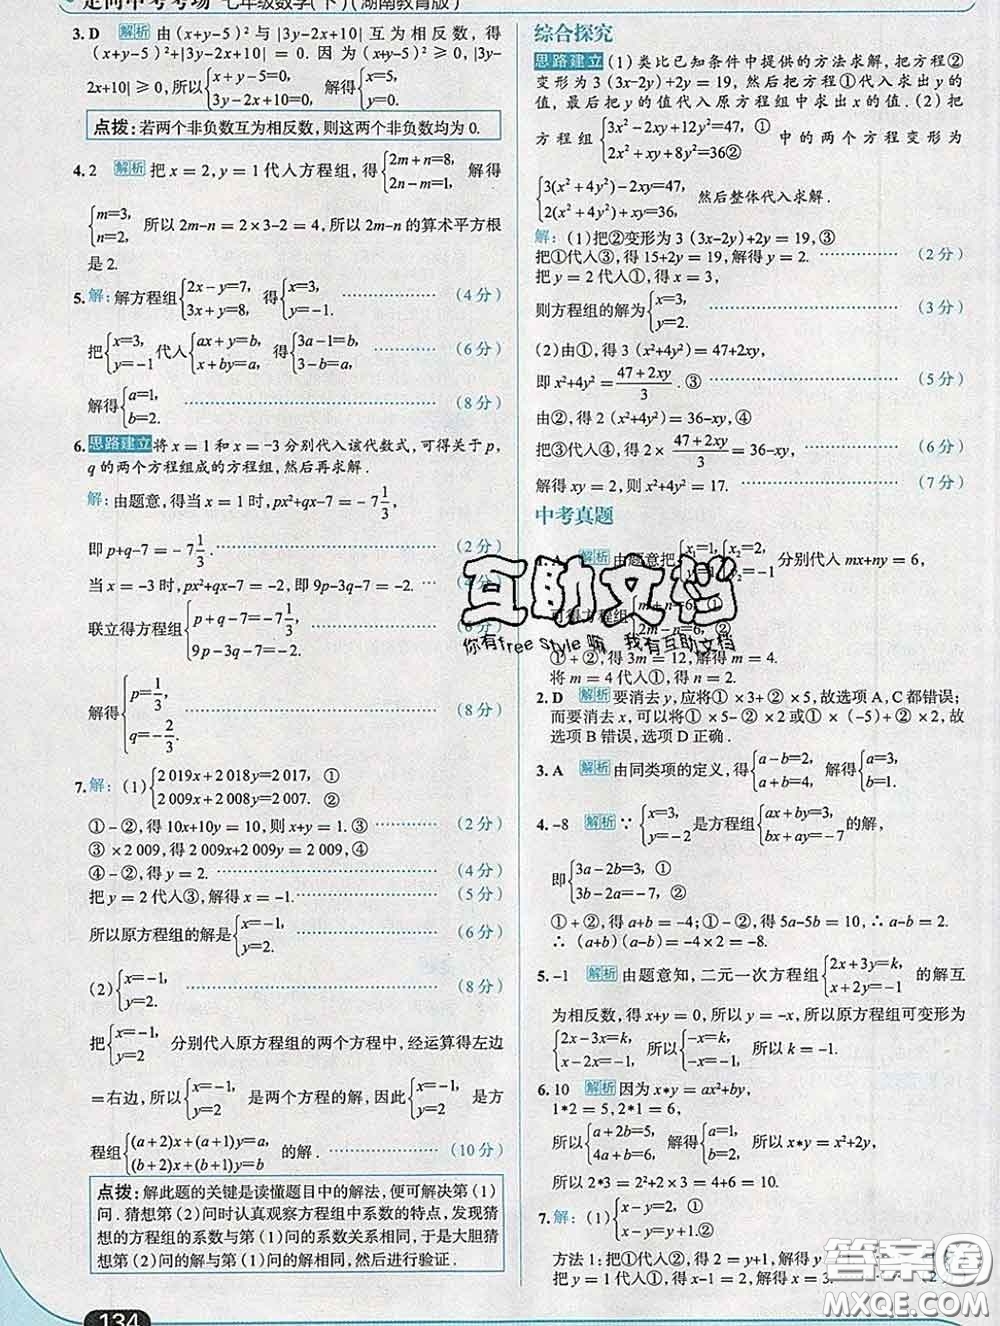 走向中考考场 七年级数学(下)(湖南教育版)
3. D 解析 由 (x+y-5)²与|3y-2x+10|互为相反数,得(x+
y-5)²+|3y-2x+10|=0. 因为(x+y-5)²≥0,|3y-
2x+10|≥0,所以{x+y-5=0, 3y-2x+10=0. 解得{x=5, y=0.
点拨:若两个非负数互为相反数,则这两个非负数均为 0.
4. 2 解析 把 x=2,y=1 代入方程组,得{2m+n=8, 2n-m=1, 解得
{m=3, n=2, 所以 2m-n=2×3-2=4,所以 2m-n 的算术平方根
是 2.
5. 解:解方程组{2x-y=7, 3x+y=8, 得{x=3, y=-1. (4 分)
把{x=3, y=-1 代入{ax+y=b, x+by=a, 得{3a-1=b, 3-b=a, (6 分)
解得{a=1, b=2. (8 分)
6. 思路建立 将 x=1 和 x=-3 分别代入该代数式,可得关于 p,
q 的两个方程组成的方程组,然后再求解.
解:由题意,得当 x=1 时,px²+qx-7=-7 1/3,
即 p+q-7=-7 1/3. (2 分)
当 x=-3 时,px²+qx-7=-2,即 9p-3q-7=-2.
联立得方程组{p+q-7=-7 1/3, 9p-3q-7=-2.
解得{p=1/3, q=-2/3. (8 分)
7. 解:(1){2 019x+2 018y=2 017, ① 2 009x+2 008y=2 007. ②
①-②,得 10x+10y=10,则 x+y=1. ③ (2 分)
③×2 009,得 2 009x+2 009y=2 009,④
④-②,得 y=2. (4 分)
把 y=2 代入③,解得 x=-1. (5 分)
所以原方程组的解是{x=-1, y=2. (6 分)
(2){x=-1, y=2. (8 分)
把{x=-1, y=2 分别代入原方程组的两个方程中,经运算得左边
=右边,所以{x=-1, y=2 是两个方程的解,因此{x=-1, y=2 是方
程组{(a+2)x+(a+1)y=a, (b+2)x+(b+1)y=b 的解. (10 分)
点拨:解此题的关键是读懂题目中的解法,便可解决第(1)
问. 猜想第(2)问时认真观察方程组中系数的特点,发现猜
想的方程组的系数与第(1)问的系数关系相同,于是大胆猜
想第(2)问的解与第(1)问的解相同,然后进行验证.
134
综合探究
思路建立 (1)类比已知条件中提供的方法求解,把方程②
变形为 3(3x-2y)+2y=19,然后把方程①代入求出 y 的
值,最后把 y 的值代入原方程组中求出 x 的值.(2)把
方程组{3x²-2xy+12y²=47, ① 2x²+xy+8y²=36② 中的两个方程变形为
{3(x²+4y²)-2xy=47, 2(x²+4y²)+xy=36, 然后整体代入求解.
解:(1)把②变形为 3(3x-2y)+2y=19,③
把①代入③,得 15+2y=19,解得 y=2. (2 分)
把 y=2 代入①,得 x=3,
则方程组的解为{x=3, y=2. (3 分)
(2)由①,得 3(x²+4y²)=47+2xy,
即 x²+4y²=(47+2xy)/3. ③ (5 分)
由②,得 2(x²+4y²)=36-xy,④
把③代入④,得 2×(47+2xy)/3=36-xy, (6 分)
解得 xy=2,则 x²+4y²=17. (7 分)
中考真题
解析 由题意把{x₁=1, {x₂=2, y₂=-1 分别代入 mx+ny=6,
可得方程组{m+n=6, ① 2m-n=6, ②
①+②,得 3m=12,解得 m=4.
将 m=4 代入①,得 n=2.
2. D 解析 要消去 y,应将①×3+②×5,故选项 A、C 都错误;
而要消去 x,可以将①×5-②×2 或①×(-5)+②×2,故
选项 B 错误,选项 D 正确.
3. A 解析 由同类项的定义,得{a-b=2, a+b=4, 解得{a=3, b=1.
4. -8 解析 ∵{x=3, y=-2 是方程组{ax+by=3, bx+ay=-7 的解,
即{3a-2b=3, ① 3b-2a=-7, ②
①+②,得 a+b=-4;①-②,得 5a-5b=10,∴ a-b=2.
∴ (a+b)(a-b)=-4×2=-8.
5. -1 解析 由题意知,二元一次方程组{2x+3y=k, x+2y=-1 的解互
为相反数,得 x+y=0,所以 y=-x,所以原方程组可变形为
{2x-3x=k, x-2x=-1. 所以{-x=k, -x=-1. 所以 k=-1.
6. 10 解析 因为 x*y=ax²+by,
1*2=5,2*1=6,
所以{a+2b=5, 4a+b=6, 解得{a=1, b=2, 所以 x*y=x²+2y,
所以 2*3=2²+2×3=4+6=10.
7. 解:(1){x-y=2, ① x-y=y+1. ②
方法 1:把①代入②,得 2=y+1,解得 y=
把 y=1 代入①,得 x-1=2,解得 x=3.
互助文档
你有free Style 嘛 我有互助文档
答案圈
MXQE.COM